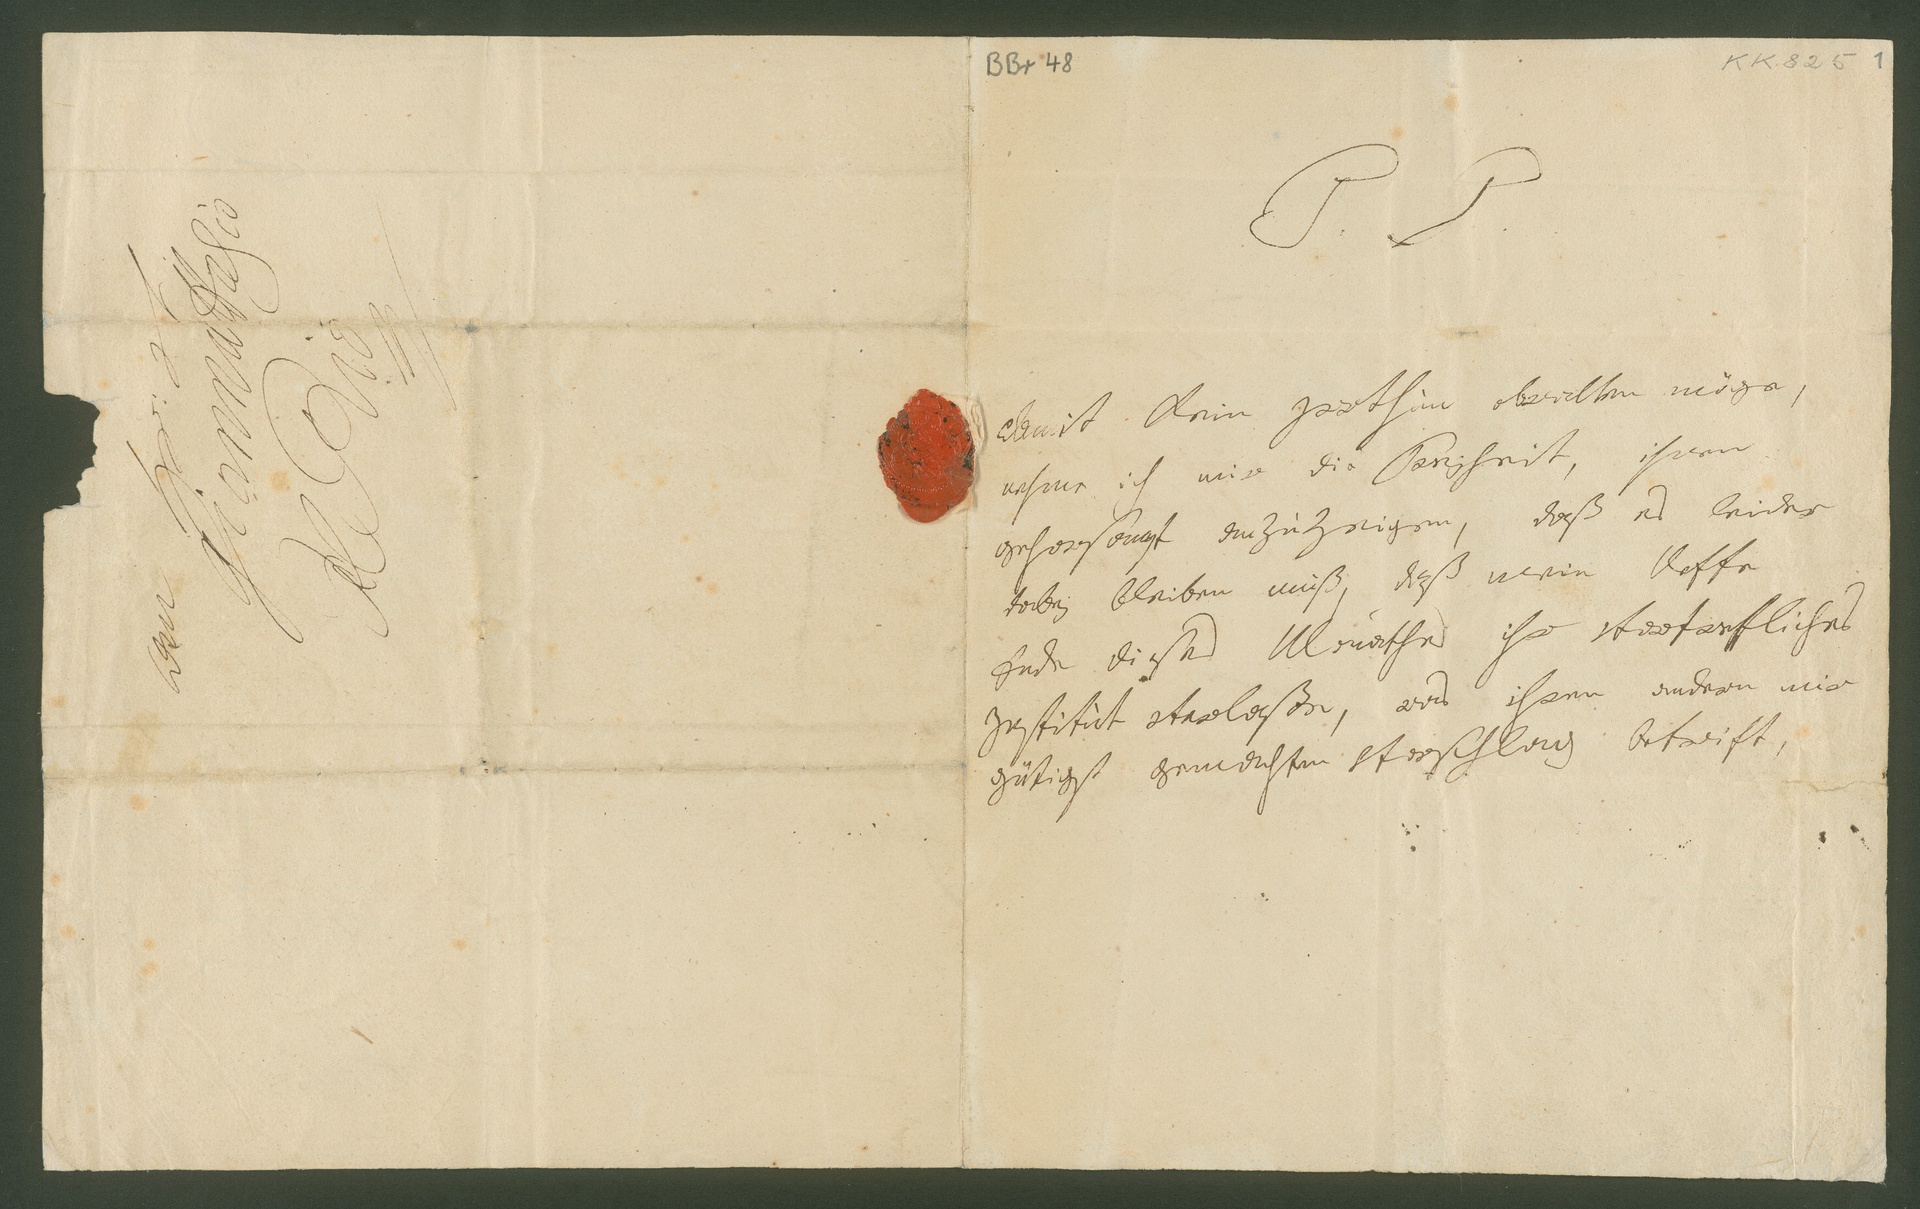 BBr 48
KK 825 1
P. P.
damit kein irrthum obwalten möge,
nehme ich mir die Freyheit, ihnen
gehorsamst anzuzeigen, daß es leider
dabej bleiben muß, daß mein Neffe
Ende dieses Monathes ihr vortreffliches
Institut verlaße, was ihren andern mir
gütigst gemachten vorschlag betreift,
Hr: v.
Giannattasio
del Rio